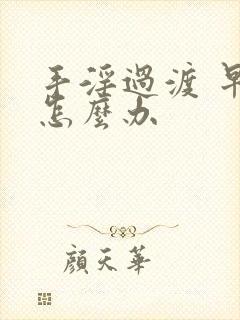 手淫過渡 早
怎麼办
顏天華